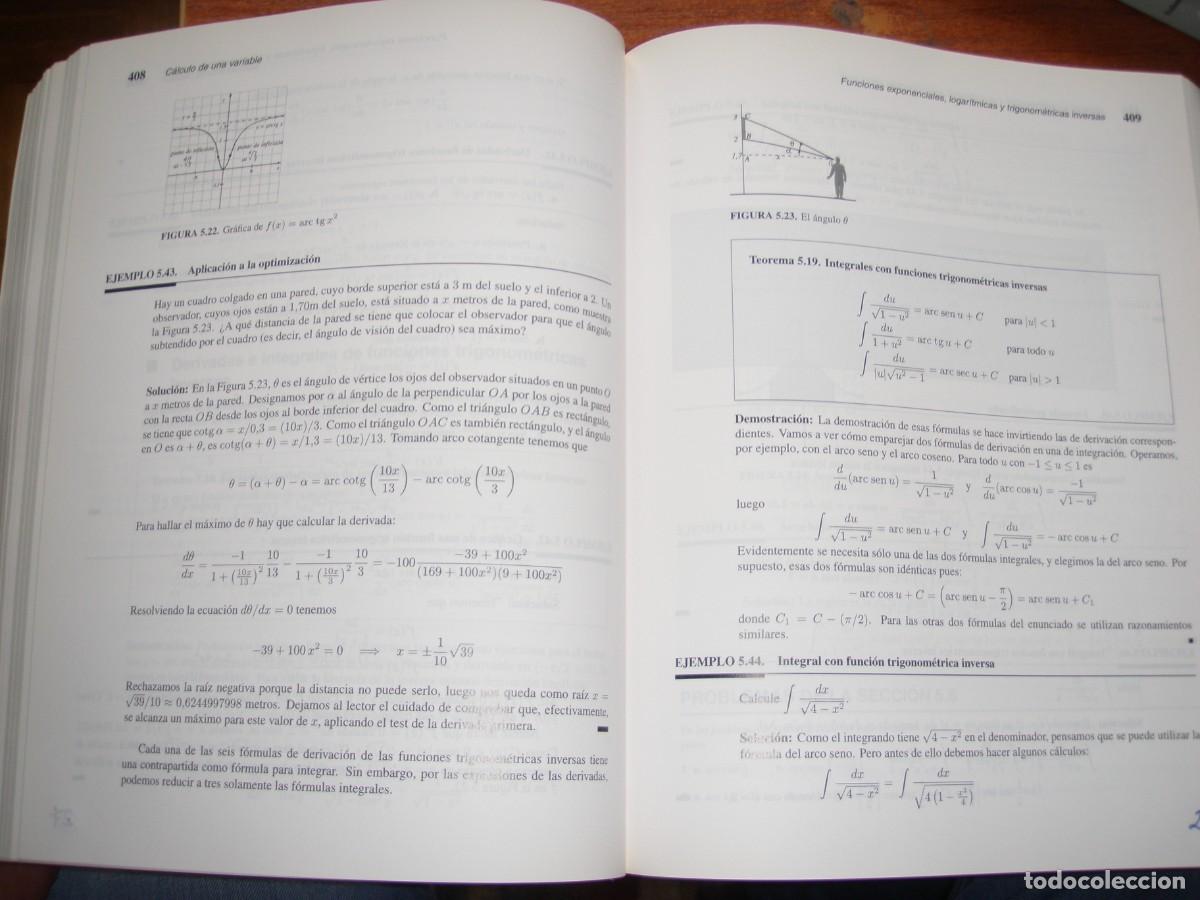 408 Cálculo de una variable
FIGURA 5.22. Gráfica de f(x) = arc tg x²
EJEMPLO 5.43. Aplicación a la optimización
Hay un cuadro colgado en una pared, cuyo borde superior está a 3 m del suelo y el inferior a 2. Un
observador, cuyos ojos están a 1,70m del suelo, está situado a x metros de la pared, como muestra
la Figura 5.23. ¿A qué distancia de la pared se tiene que colocar el observador para que el ángulo
subtendido por el cuadro (es decir, el ángulo de visión del cuadro) sea máximo?
Solución: En la Figura 5.23, θ es el ángulo de vértice los ojos del observador situados en un punto O
a x metros de la pared. Designamos por α al ángulo de la perpendicular OA por los ojos a la pared
con la recta OB desde los ojos al borde inferior del cuadro. Como el triángulo OAB es rectángulo,
se tiene que cotg α = x/0,3 = (10x)/3. Como el triángulo OAC es también rectángulo, y el ángulo
en O es α + θ, es cotg(α + θ) = x/1,3 = (10x)/13. Tomando arco cotangente tenemos que
θ = (α + θ) − α = arc cotg (10x/13) − arc cotg (10x/3)
Para hallar el máximo de θ hay que calcular la derivada:
dθ/dx = −1/(1 + (10x/13)²) 10/13 − −1/(1 + (10x/3)²) 10/3 = −100 (−39 + 100x²)/((169 + 100x²)(9 + 100x²))
Resolviendo la ecuación dθ/dx = 0 tenemos
−39 + 100 x² = 0 ⟹ x = ±1/10 √39
Rechazamos la raíz negativa porque la distancia no puede serlo, luego nos queda como raíz x =
√39/10 ≈ 0,6244997998 metros. Dejamos al lector el cuidado de comprobar que, efectivamente,
se alcanza un máximo para este valor de x, aplicando el test de la derivada primera.
Cada una de las seis fórmulas de derivación de las funciones trigonométricas inversas tiene
una contrapartida como fórmula para integrar. Sin embargo, por las expresiones de las derivadas,
podemos reducir a tres solamente las fórmulas integrales.
Funciones exponenciales, logarítmicas y trigonométricas inversas 409
3 C
2 B
1,7 A x α θ
FIGURA 5.23. El ángulo θ
Teorema 5.19. Integrales con funciones trigonométricas inversas
∫ du/√(1 − u²) = arc sen u + C para |u| < 1
∫ du/(1 + u²) = arc tg u + C para todo u
∫ du/(|u|√(u² − 1)) = arc sec u + C para |u| > 1
Demostración: La demostración de esas fórmulas se hace invirtiendo las de derivación correspon-
dientes. Vamos a ver cómo emparejar dos fórmulas de derivación en una de integración. Operamos,
por ejemplo, con el arco seno y el arco coseno. Para todo u con −1 ≤ u ≤ 1 es
d/du (arc sen u) = 1/√(1 − u²) y d/du (arc cos u) = −1/√(1 − u²)
luego
∫ du/√(1 − u²) = arc sen u + C y ∫ du/√(1 − u²) = − arc cos u + C
Evidentemente se necesita sólo una de las dos fórmulas integrales, y elegimos la del arco seno. Por
supuesto, esas dos fórmulas son idénticas pues:
− arc cos u + C = (arc sen u − π/2) = arc sen u + C₁
donde C₁ = C − (π/2). Para las otras dos fórmulas del enunciado se utilizan razonamientos
similares.
EJEMPLO 5.44. Integral con función trigonométrica inversa
Calcule ∫ dx/√(4 − x²).
Solución: Como el integrando tiene √(4 − x²) en el denominador, pensamos que se puede utilizar la
fórmula del arco seno. Pero antes de ello debemos hacer algunos cálculos:
∫ dx/√(4 − x²) = ∫ dx/√(4(1 − x²/4))
todocoleccion